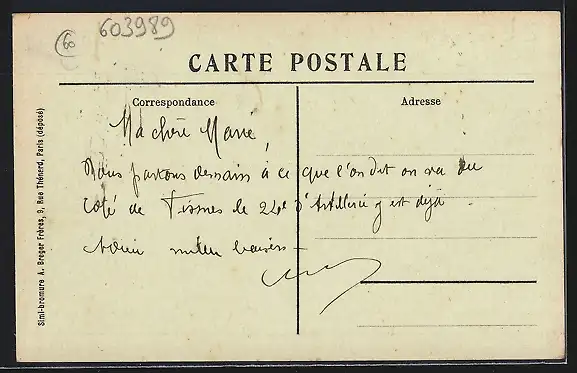 60
603989
CARTE POSTALE
Correspondance
Adresse
Ma chère Marie,
Nous partons demain à ce que l'on dit on va du
coté de Fismes le 24e d'Artillerie y est déjà
Adieu milles baisers —
Simi-bromure A. Breger Frères, 9, Rue Thénard, Paris (déposé)